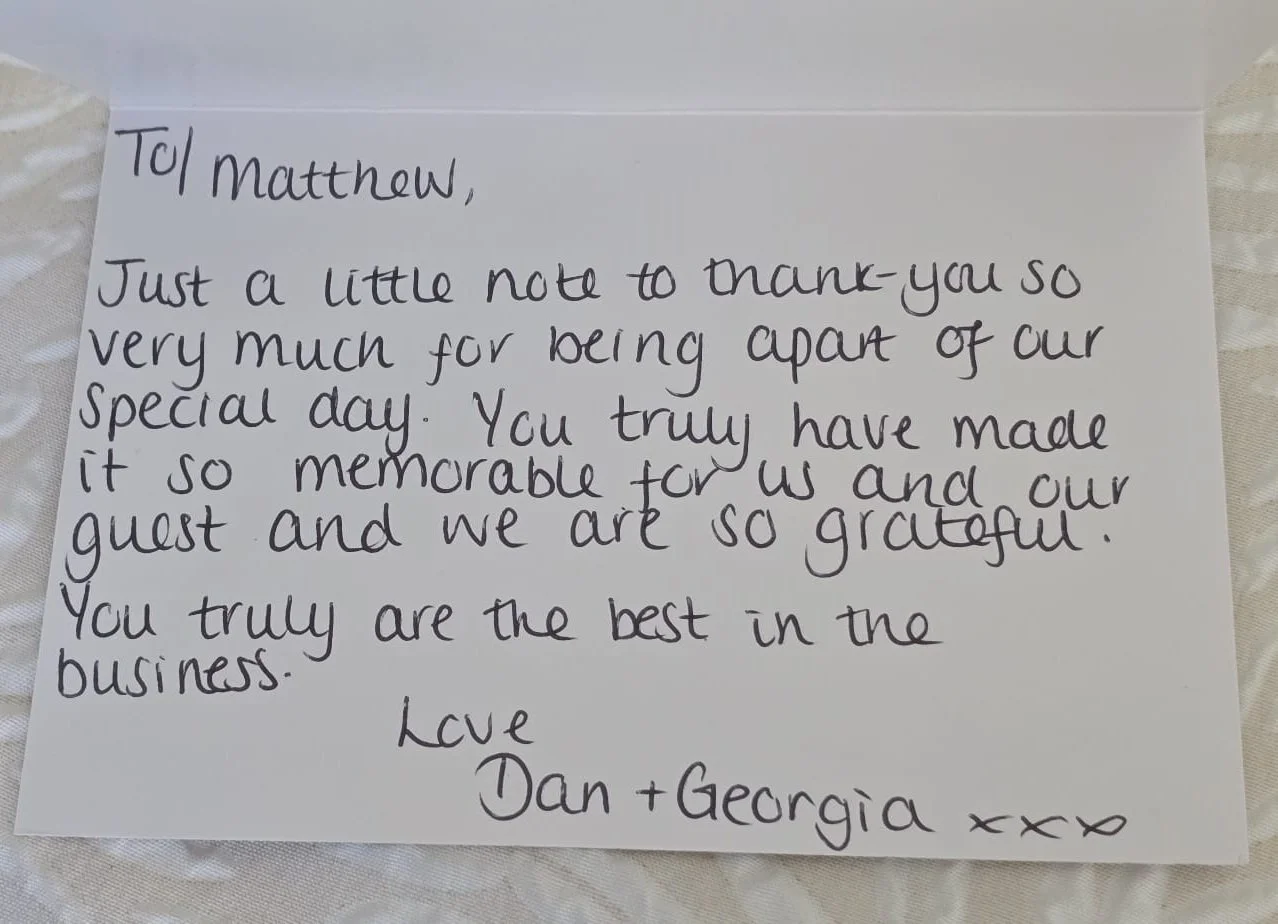 To/ Matthew,
Just a little note to thank-you so
very much for being apart of our
special day. You truly have made
it so memorable for us and our
guest and we are so grateful.
You truly are the best in the
business.
Love
Dan + Georgia xxx